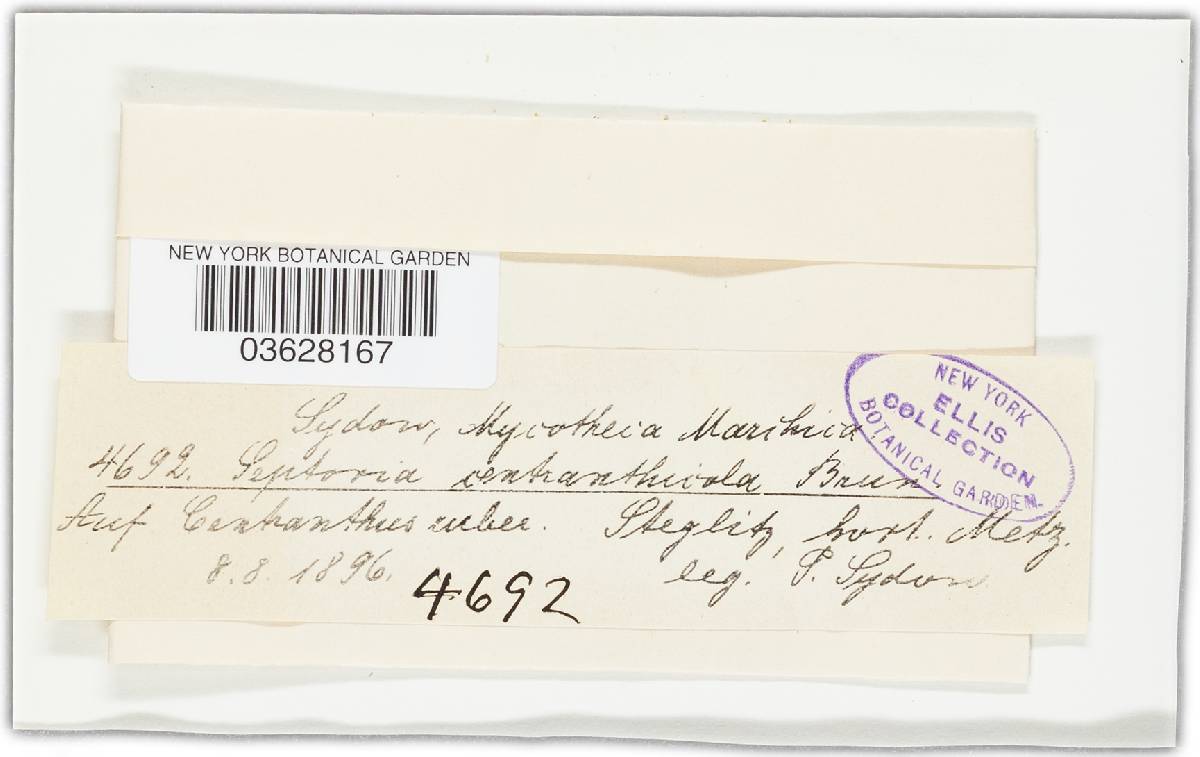 NEW YORK BOTANICAL GARDEN
03628167
NEW YORK
ELLIS
COLLECTION
BOTANICAL GARDEN
Sydow, Mycotheca Marchica
4692. Septoria centranthicola Brun
Auf Centranthus ruber. Steglitz, hort. Metz.
8.8.1896. leg. P. Sydow
4692